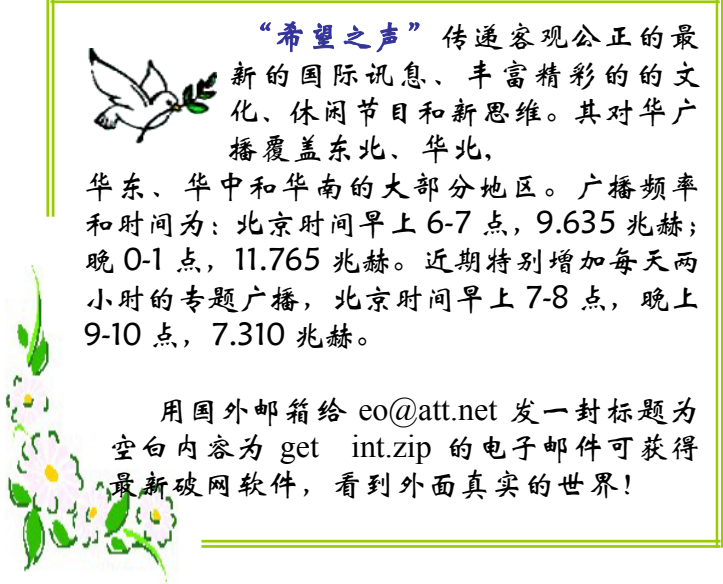 “希望之声”传递客观公正的最
新的国际讯息、丰富精彩的的文
化、休闲节目和新思维。其对华广
播覆盖东北、华北,
华东、华中和华南的大部分地区。广播频率
和时间为：北京时间早上 6-7 点，9.635 兆赫；
晚 0-1 点，11.765 兆赫。近期特别增加每天两
小时的专题广播，北京时间早上 7-8 点，晚上
9-10 点，7.310 兆赫。
用国外邮箱给 eo@att.net 发一封标题为
空白内容为 get int.zip 的电子邮件可获得
最新破网软件，看到外面真实的世界！